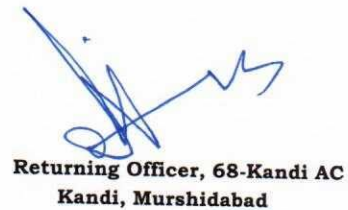 Returning Officer, 68-Kandi AC
Kandi, Murshidabad